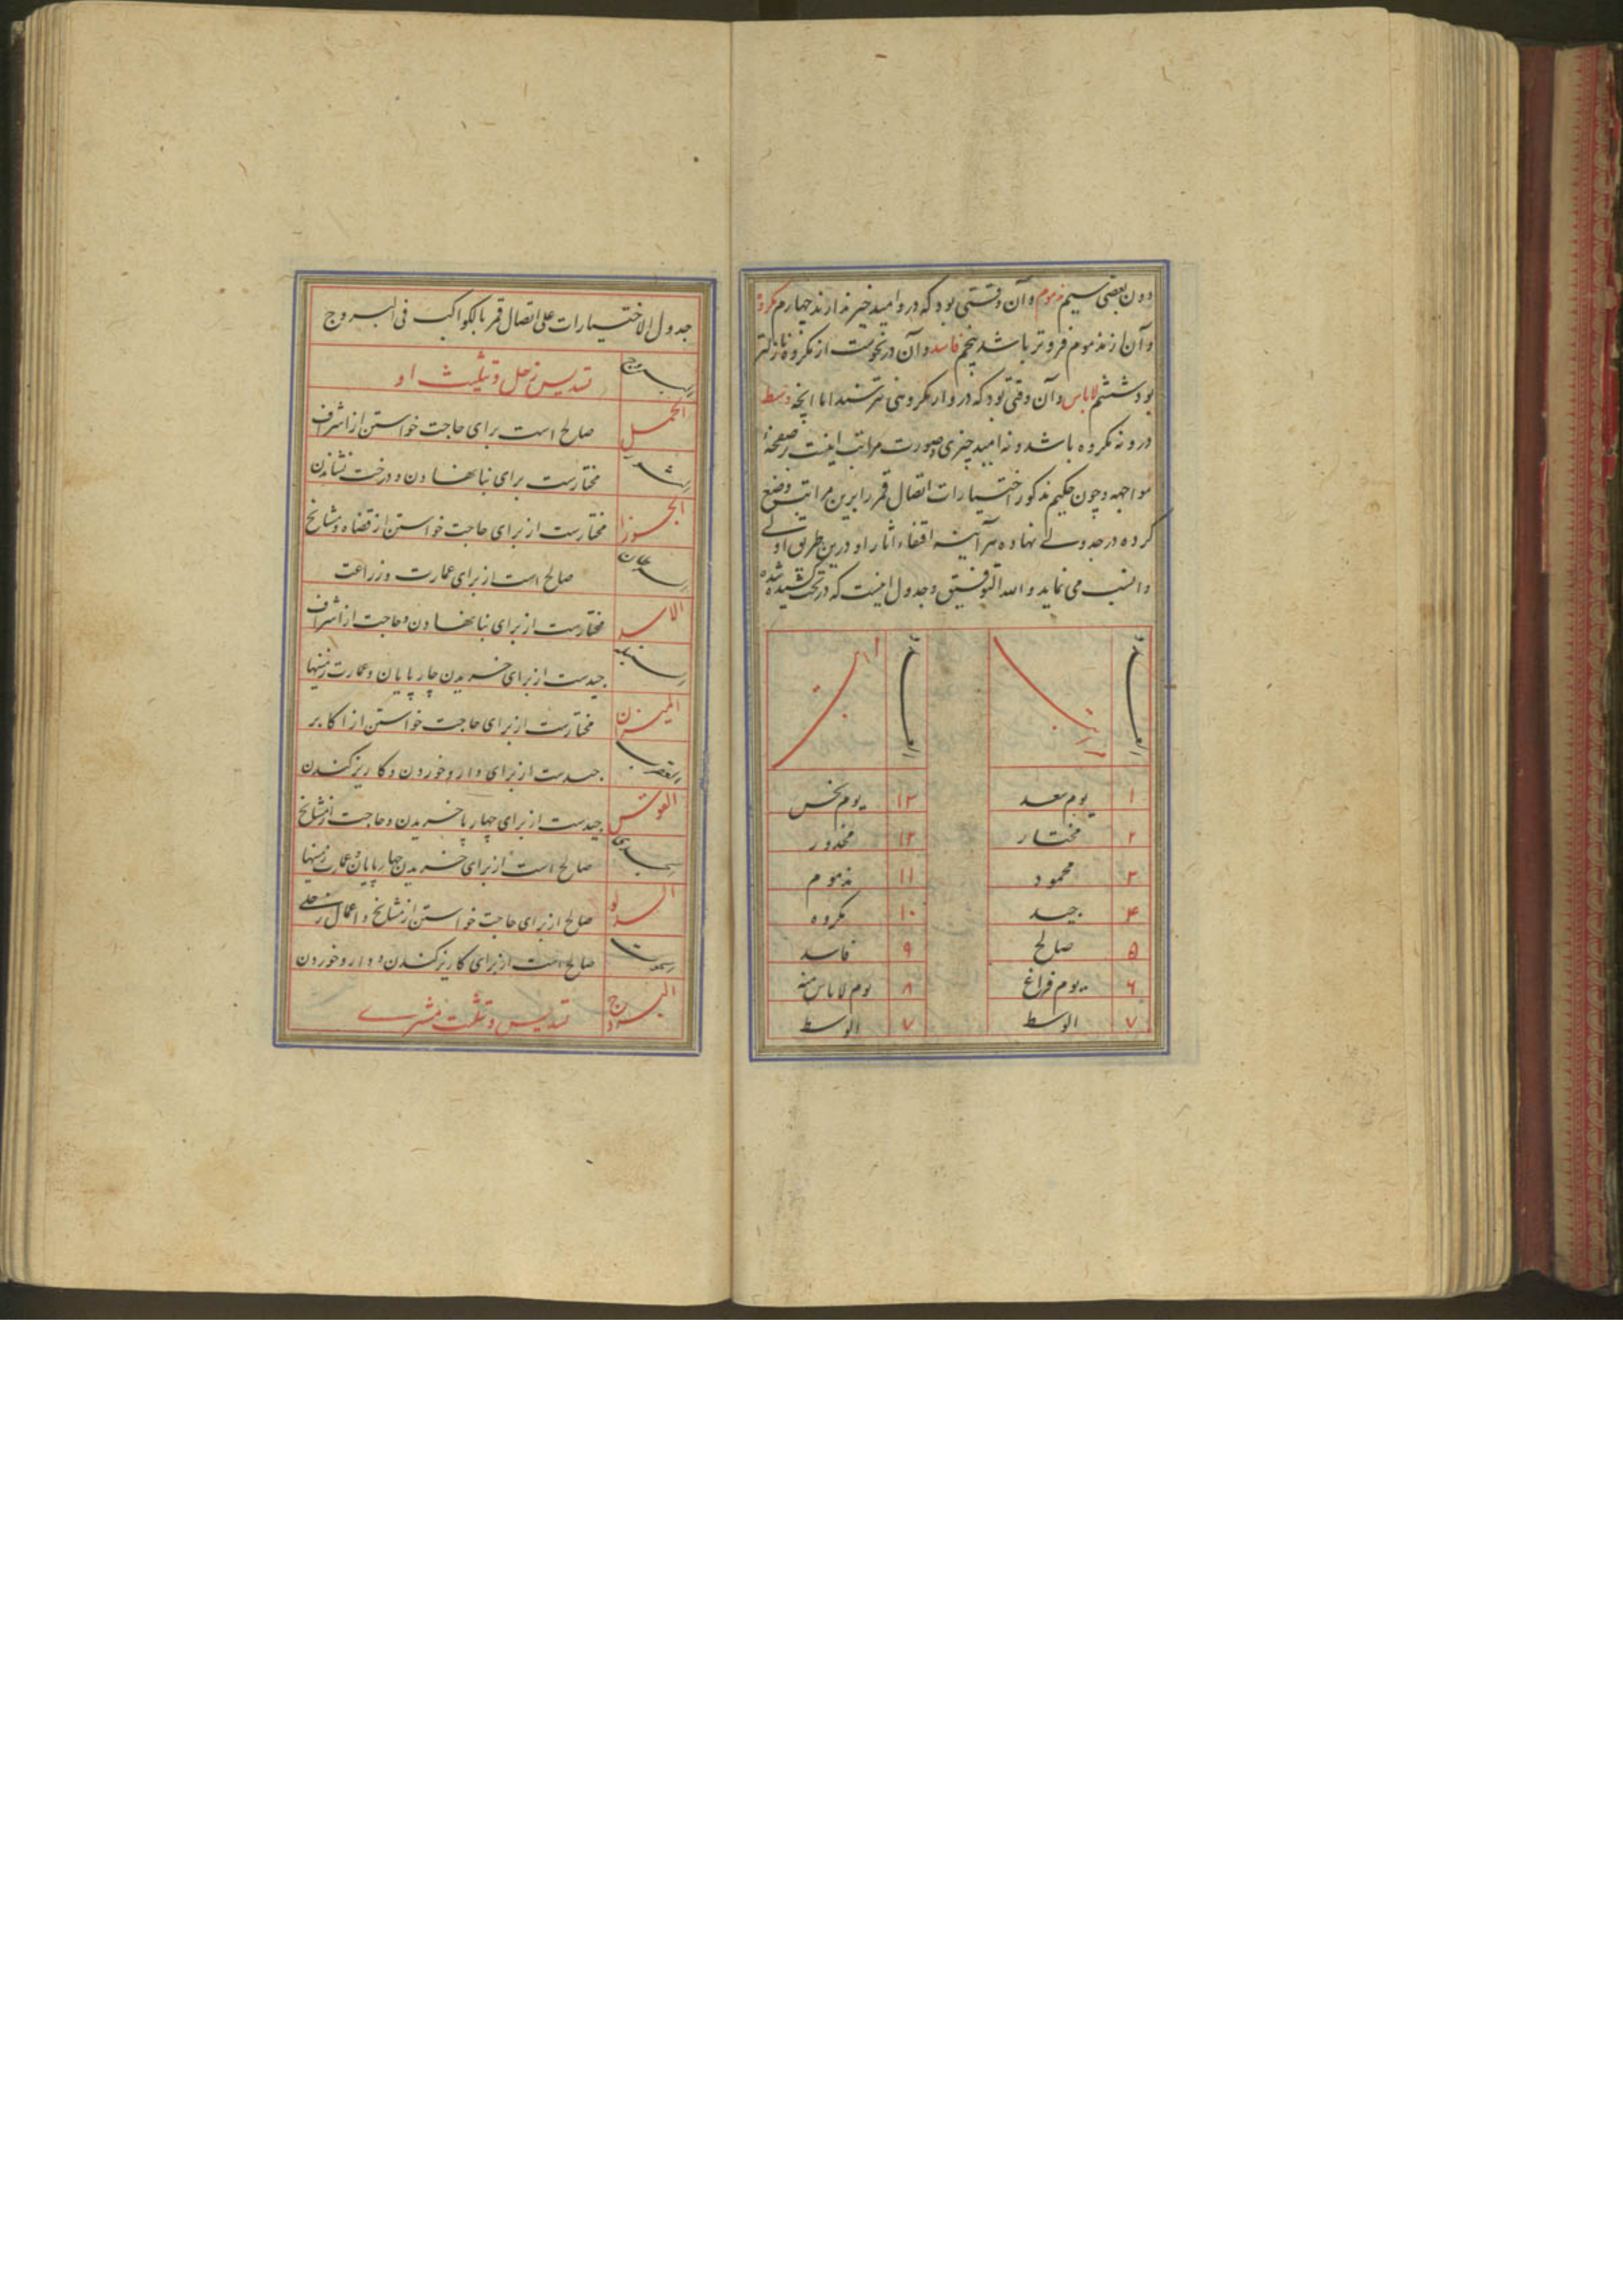 دون بعضی سیم مذموم و آن وقتی بود که درو امید خیر ندارند چهارم مکروه
و آن از مذموم فروتر باشد پنجم فاسد و آن در نحوست از مکروه نازلتر
بود ششم لاباس و آن وقتی بود که درو از مکروهی نترسند اما آنچه وسط
درو نه مکروه باشد و نه امید چیزی و صورت مراتب اینست بر صفحهٔ
مواجهه و چون حکیم مذکور اختیارات اتصال قمر را برین مراتب وضع
کرده در جدولی نهاده هر آینه اقتفاء اثار او درین طریق اولی
و انسب می نماید و الله التوفیق و جدول اینست که در تحت کشیده شده
۱ یوم سعد ۱۳ یوم نحس
۲ مختار ۱۲ محذور
۳ محمود ۱۱ مذموم
۴ جید ۱۰ مکروه
۵ صالح ۹ فاسد
۶ یوم فراغ ۸ یوم لاباس منه
۷ الوسط ۷ الوسط
جدول الاختیارات علی اتصال قمر بالکواکب فی البروج
البروج تسدیس زحل و تثلیث او
الحمل صالح است برای حاجت خواستن از اشراف
الثور مختارست برای بنا نهادن و درخت نشاندن
الجوزا مختارست از برای حاجت خواستن از قضاه و مشایخ
السرطان صالح است از برای عمارت و زراعت
الاسد مختارست از برای بنا نهادن و حاجت از اشراف
السنبله جیدست از برای خریدن چارپایان و عمارت زمینها
المیزان مختارست از برای حاجت خواستن از اکابر
العقرب جیدست از برای دارو خوردن و کاریز کندن
القوس جیدست از برای چهارپا خریدن و حاجت از مشایخ
الجدی صالح است از برای خریدن چهارپایان و عمارت زمینها
الدلو صالح از برای حاجت خواستن از مشایخ و اعمال زحلی
الحوت صالح است از برای کاریز کندن و دارو خوردن
البروج تسدیس و تثلیث مشتری